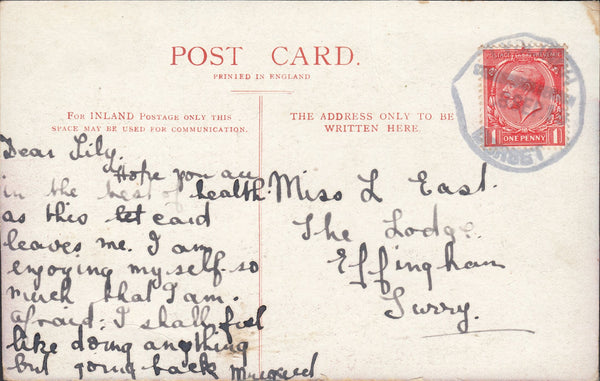 POST CARD.
PRINTED IN ENGLAND
FOR INLAND POSTAGE ONLY THIS
SPACE MAY BE USED FOR COMMUNICATION.
THE ADDRESS ONLY TO BE
WRITTEN HERE.
ONE PENNY
1 1
Dear Lily.
Hope you are
in the best of health
as this let card
leaves me. I am
enjoying my self so
much that I am.
afraid; I shall feel
like doing anything
but going back
Miss L East.
The Lodge.
Effingham
Surry.